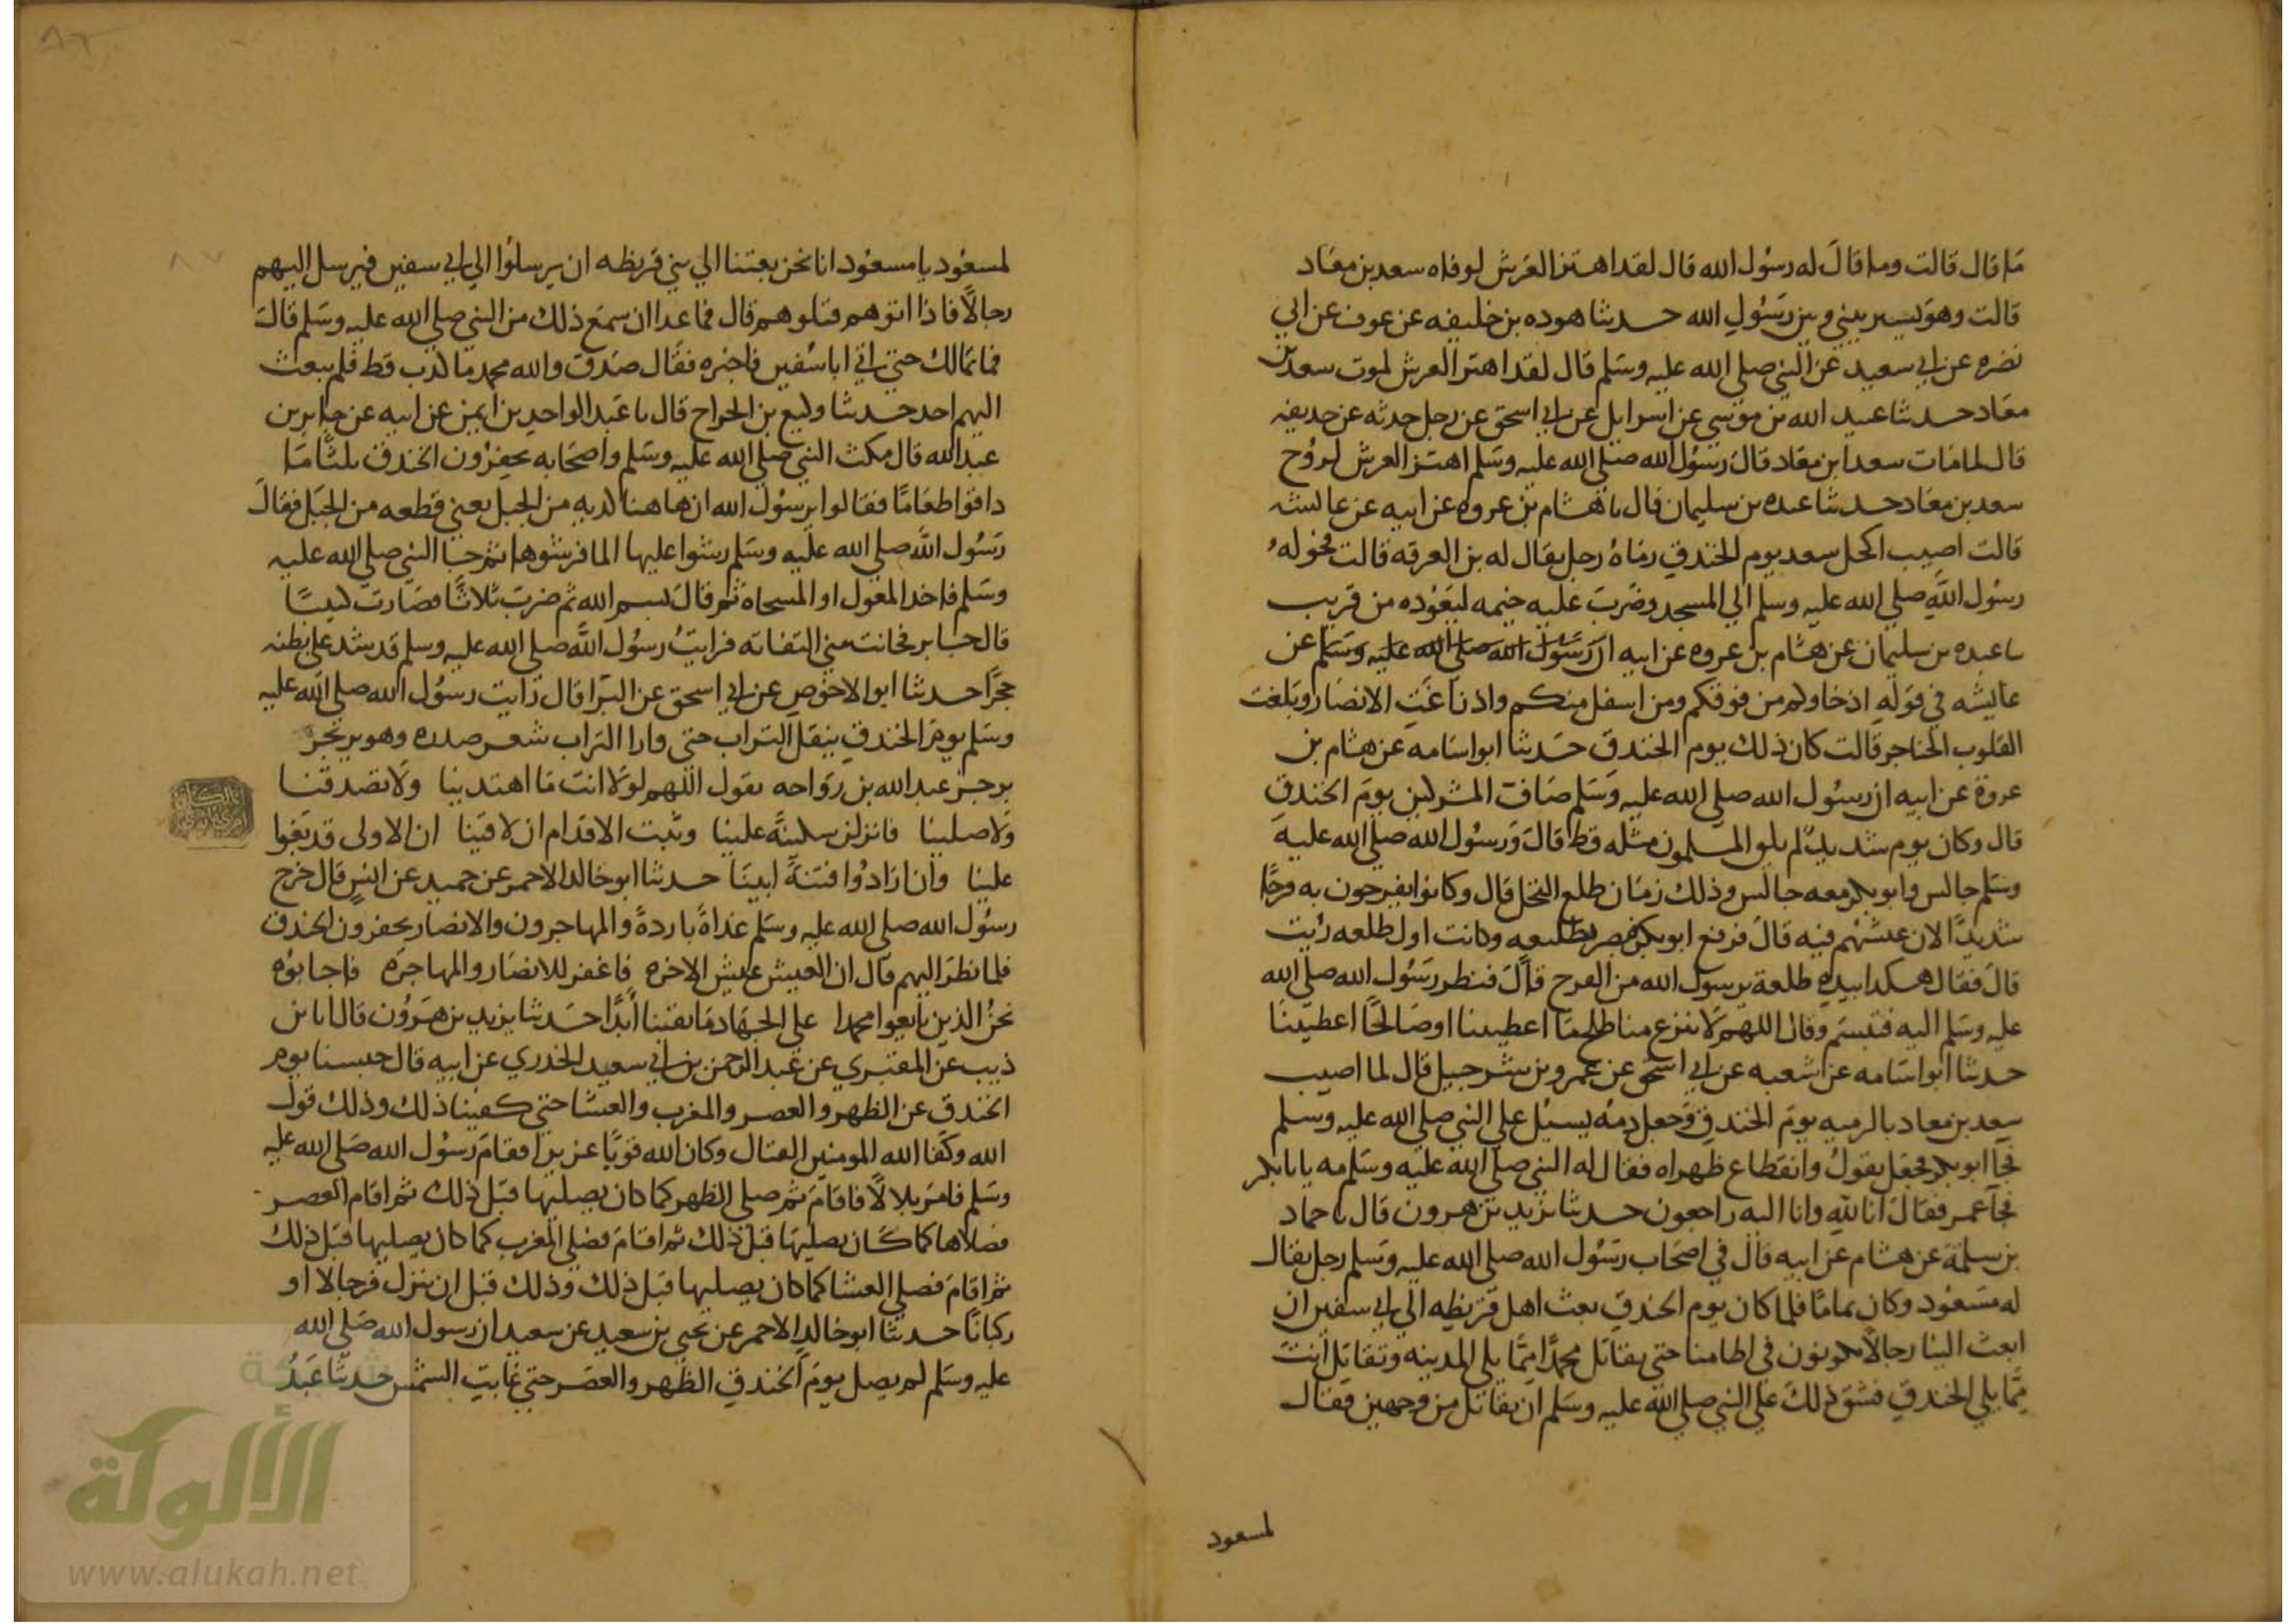 ما قال قالت وما قال له رسول الله قال لقد اهتز العرش لوفاه سعد بن معاد
قالت وهو يسير بيني وبين رسول الله حدثنا هوده بن خليفه عن عوف عن ابي
نضره عن ابي سعيد عن النبي صلي الله عليه وسلم قال لقد اهتز العرش لموت سعد بن
معاد حدثنا عبيد الله بن موسي عن اسرايل عن ابي اسحق عن رجل حدثه عن حديفه
قال لما مات سعد ابن معاد قال رسول الله صلي الله عليه وسلم اهتز العرش لروح
سعد بن معاد حدثنا عبده بن سليمان قال نا هشام بن عروه عن ابيه عن عايشه
قالت اصيب اكحل سعد يوم الخندق رماه رجل يقال له بن العرقه قالت فحوله
رسول الله صلي الله عليه وسلم الي المسجد وضرب عليه خيمه ليعوده من قريب
نا عبده بن سليمان عن هشام بن عروه عن ابيه ان رسول الله صلي الله عليه وسلم عن
عايشه في قوله اذ جاوكم من فوقكم ومن اسفل منكم واذ زاغت الابصار وبلغت
القلوب الحناجر قالت كان ذلك يوم الخندق حدثنا ابو اسامه عن هشام بن
عروة عن ابيه ان رسول الله صلي الله عليه وسلم صاف المشركين يوم الخندق
قال وكان يوم شديد لم يلق المسلمون مثله قط قال ورسول الله صلي الله عليه
وسلم جالس وابو بكر معه جالس وذلك زمان طلع النخل قال وكانوا يفرحون به فرحا
شديدا لان عيشهم فيه قال فرفع ابو بكر فبصر بطلعه وكانت اول طلعه رئيت
قال فقال هكدا بيده طلعة يرسول الله من الفرح قال فنظر رسول الله صلي الله
عليه وسلم اليه فتبسم وقال اللهم لا تنزع منا صالح ما اعطيتنا او صالحا اعطيتنا
حدثنا ابو اسامه عن شعبه عن ابي اسحق عن عمرو بن شرحبيل قال لما اصيب
سعد بن معاد بالرميه يوم الخندق وجعل دمه يسيل علي النبي صلي الله عليه وسلم
فجا ابو بكر فجعل يقول وانقطاع ظهراه فقال له النبي صلي الله عليه وسلم مه يابا بكر
فجا عمر فقال انا لله وانا اليه راجعون حدثنا يزيد بن هرون قال نا حماد
بن سلمة عن هشام عن ابيه قال في اصحاب رسول الله صلي الله عليه وسلم رجل يقال
له مسعود وكان نماما فلما كان يوم الخندق بعث اهل قريظه الي ابي سفين ان
ابعث الينا رجالا يكونون في اطامنا حتي يقاتل محمدا مما يلي المدينه وتقاتل انت
مما يلي الخندق فشق ذلك علي النبي صلي الله عليه وسلم ان يقاتل من وجهين فقال
لمسعود
لمسعود يا مسعود انا نحن بعثنا الي بني قريظه ان يرسلوا الي ابي سفين فيرسل اليهم
رجالا فاذا اتوهم قتلوهم قال فما عدا ان سمع ذلك من النبي صلي الله عليه وسلم قال
فما تمالك حتي اتي ابا سفين فاخبره فقال صدق والله محمد ما كدب قط فلم يبعث
اليهم احد حدثنا وكيع بن الجراح قال نا عبد الواحد بن ايمن عن ابيه عن جابر بن
عبد الله قال مكث النبي صلي الله عليه وسلم واصحابه يحفرون الخندق ثلثا ما
داقوا طعاما فقالوا يرسول الله ان هاهنا كديه من الجبل يعني قطعه من الجبل فقال
رسول الله صلي الله عليه وسلم رشوا عليها الما فرشوها ثم جا النبي صلي الله عليه
وسلم فاخد المعول او المسحاه ثم قال بسم الله ثم ضرب ثلاثا فصارت كثيبا
قال جابر فحانت مني التفاته فرايت رسول الله صلي الله عليه وسلم قد شد علي بطنه
حجرا حدثنا ابو الاحوص عن ابي اسحق عن البرا قال رايت رسول الله صلي الله عليه
وسلم يوم الخندق ينقل التراب حتي وارا التراب شعر صدره وهو يرتجز
برجز عبد الله بن رواحه يقول اللهم لولا انت ما اهتدينا ولا تصدقنا
ولا صلينا فانزلن سكينة علينا وثبت الاقدام ان لاقينا ان الاولى قد بغوا
علينا وان ارادوا فتنة ابينا حدثنا ابو خالد الاحمر عن حميد عن انس قال خرج
رسول الله صلي الله عليه وسلم غداة باردة والمهاجرون والانصار يحفرون الخندق
فلما نظر اليهم قال ان العيش عيش الاخره فاغفر للانصار والمهاجره فاجابوه
نحن الذين بايعوا محمدا علي الجهاد ما بقينا ابدا حدثنا يزيد بن هرون قال انا بن
ذيب عن المقبري عن عبد الرحمن بن ابي سعيد الخدري عن ابيه قال حبسنا يوم
الخندق عن الظهر والعصر والمغرب والعشا حتي كفينا ذلك وذلك قول
الله وكفا الله المومنين القتال وكان الله قويا عزيزا فقام رسول الله صلي الله عليه
وسلم فامر بلالا فاقام ثم صلي الظهر كما كان يصليها قبل ذلك ثم اقام العصر
فصلاها كما كان يصليها قبل ذلك ثم اقام فصلي المغرب كما كان يصليها قبل ذلك
ثم اقام فصلي العشا كما كان يصليها قبل ذلك وذلك قبل ان ينزل فرجالا او
ركبانا حدثنا ابو خالد الاحمر عن يحيي بن سعيد عن سعيد ان رسول الله صلي الله
عليه وسلم لم يصل يوم الخندق الظهر والعصر حتي غابت الشمس حدثنا عبد
شبكة
الألوكة
www.alukah.net